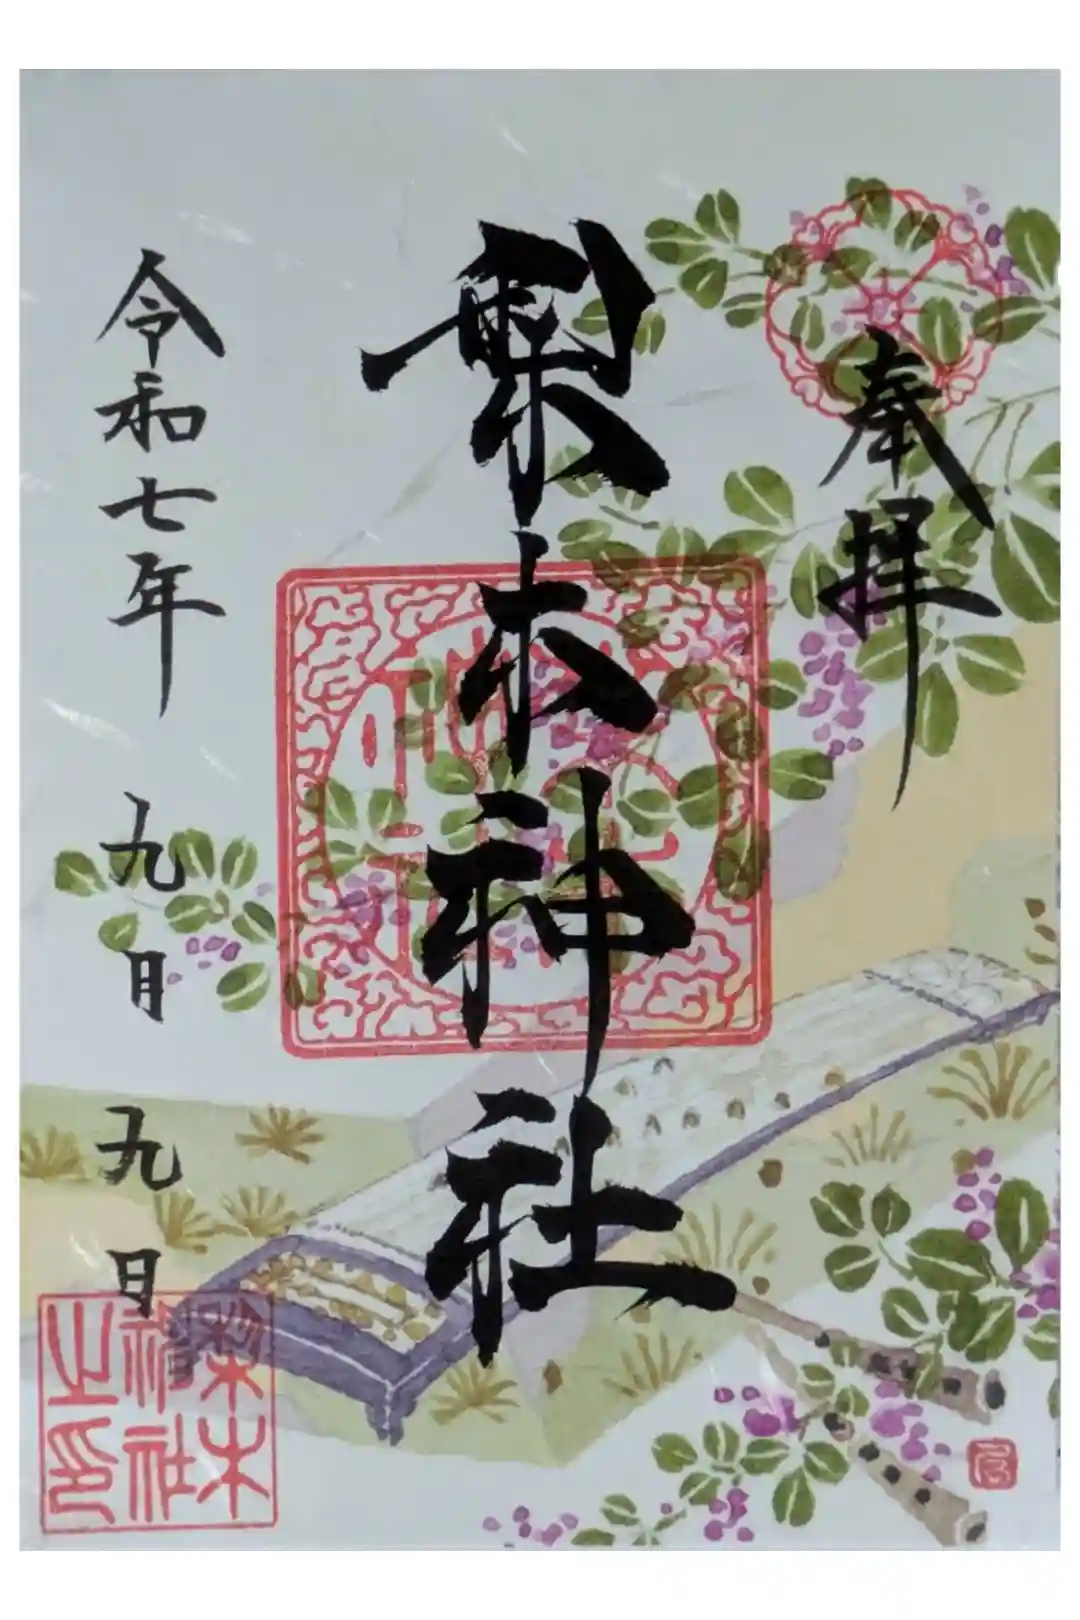 奉拝
梨木神社
令和七年九月九日
梨木
神社
之印